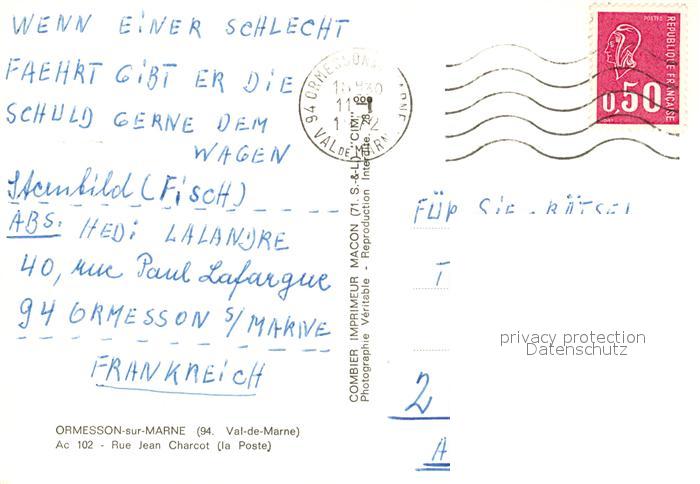 WENN EINER SCHLECHT
FAEHRT GIBT ER DIE
SCHULD GERNE DEM
WAGEN
Sternbild (FISCH)
ABS: HEDI LALANDRE
40, rue Paul Lafargue
94 ORMESSON S/MARNE
FRANKREICH
ORMESSON-sur-MARNE (94. Val-de-Marne)
Ac 102 - Rue Jean Charcot (la Poste)
COMBIER IMPRIMEUR MACON (71. S.-&-L.) "CIM"
Photographie Véritable - Reproduction Interdite.
94 ORMESSON
VAL DE MARNE
POSTES
REPUBLIQUE FRANÇAISE
0,50
FÜR SIE - RÄTSEL
2
A
privacy protection
Datenschutz